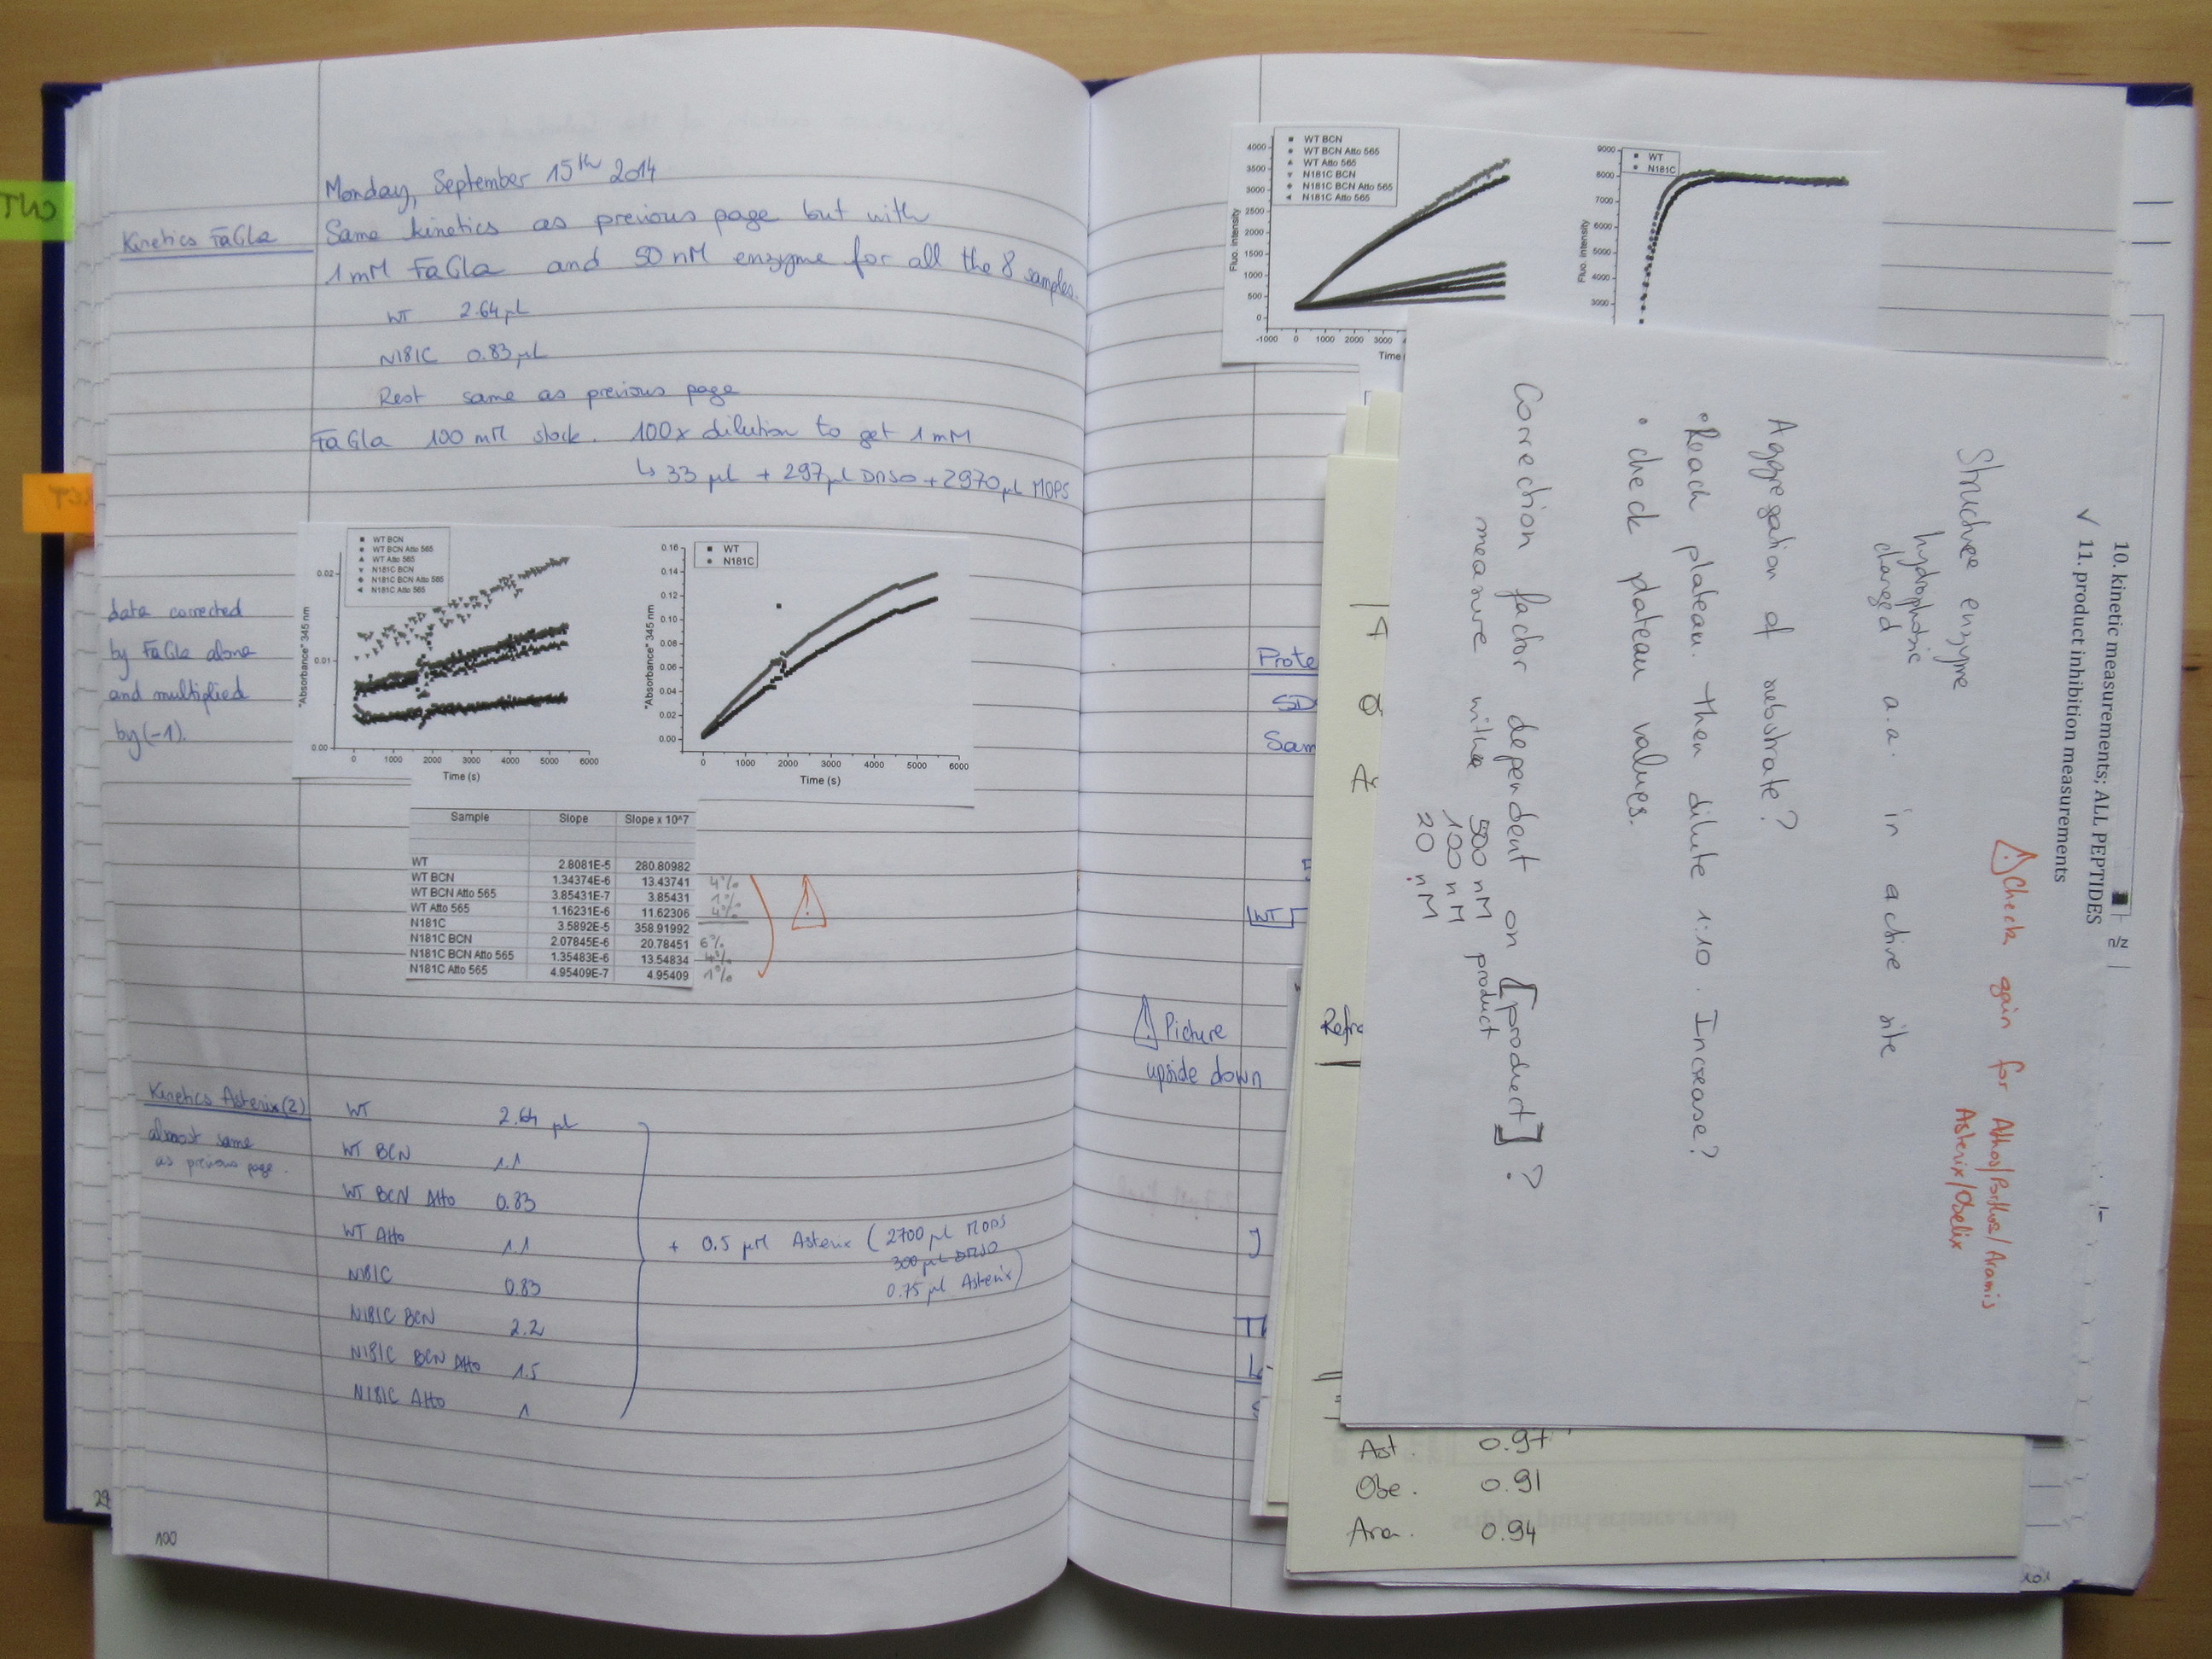 TWO
Kinetics FaGla
Monday, September 15th 2014
Same kinetics as previous page but with
1 mM FaGla and 50 nM enzyme for all the 8 samples.
WT 2.64 µL
N181C 0.83 µL
Rest same as previous page
FaGla 100 mM stock. 100x dilution to get 1 mM
↳ 33 µL + 297 µL DMSO + 2970 µL MOPS
data corrected
by FaGla alone
and multiplied
by (-1).
WT BCN
WT BCN Atto 565
WT Atto 565
N181C BCN
N181C BCN Atto 565
N181C Atto 565
"Absorbance" 345 nm
0.02
0.01
0.00
0 1000 2000 3000 4000 5000 6000
Time (s)
WT
N181C
"Absorbance" 345 nm
0.16
0.14
0.12
0.10
0.08
0.06
0.04
0.02
0.00
0 1000 2000 3000 4000 5000 6000
Time (s)
Sample Slope Slope x 10^7
WT 2.8081E-5 280.80982
WT BCN 1.34374E-6 13.43741 4%
WT BCN Atto 565 3.85431E-7 3.85431 1%
WT Atto 565 1.16231E-6 11.62306 4%
N181C 3.5892E-5 358.91992
N181C BCN 2.07845E-6 20.78451 6%
N181C BCN Atto 565 1.35483E-6 13.54834 4%
N181C Atto 565 4.95409E-7 4.95409 1%
!
Kinetics Asterix (2)
almost same
as previous page.
WT 2.64 µL
WT BCN 1.1
WT BCN Atto 0.83
WT Atto 1.1
N181C 0.83
N181C BCN 2.2
N181C BCN Atto 1.5
N181C Atto 1
+ 0.5 µM Asterix (2700 µL MOPS
300 µL DMSO
0.75 µL Asterix)
29
100
WT BCN
WT BCN Atto 565
WT Atto 565
N181C BCN
N181C BCN Atto 565
N181C Atto 565
Fluo. intensity
4000
3500
3000
2500
2000
1500
1000
500
0
-1000 0 1000 2000 3000
Time
WT
N181C
Fluo. intensity
9000
8000
7000
6000
5000
4000
3000
10. kinetic measurements; ALL PEPTIDES
✓ 11. product inhibition measurements
⚠ Check again for Athos/Porthos/Aramis
Asterix/Obelix
Structure enzyme
hydrophobic
charged a.a. in active site
Aggregation of substrate?
• Reach plateau. then dilute 1:10. Increase?
• check plateau values.
Correction factor dependent on [product]?
measure with 500 nM product
100 nM
20 nM
Prote
SD
Sam
WT
⚠ Picture
upside down
Refra
Ast. 0.97
Obe. 0.91
Ara. 0.94
101